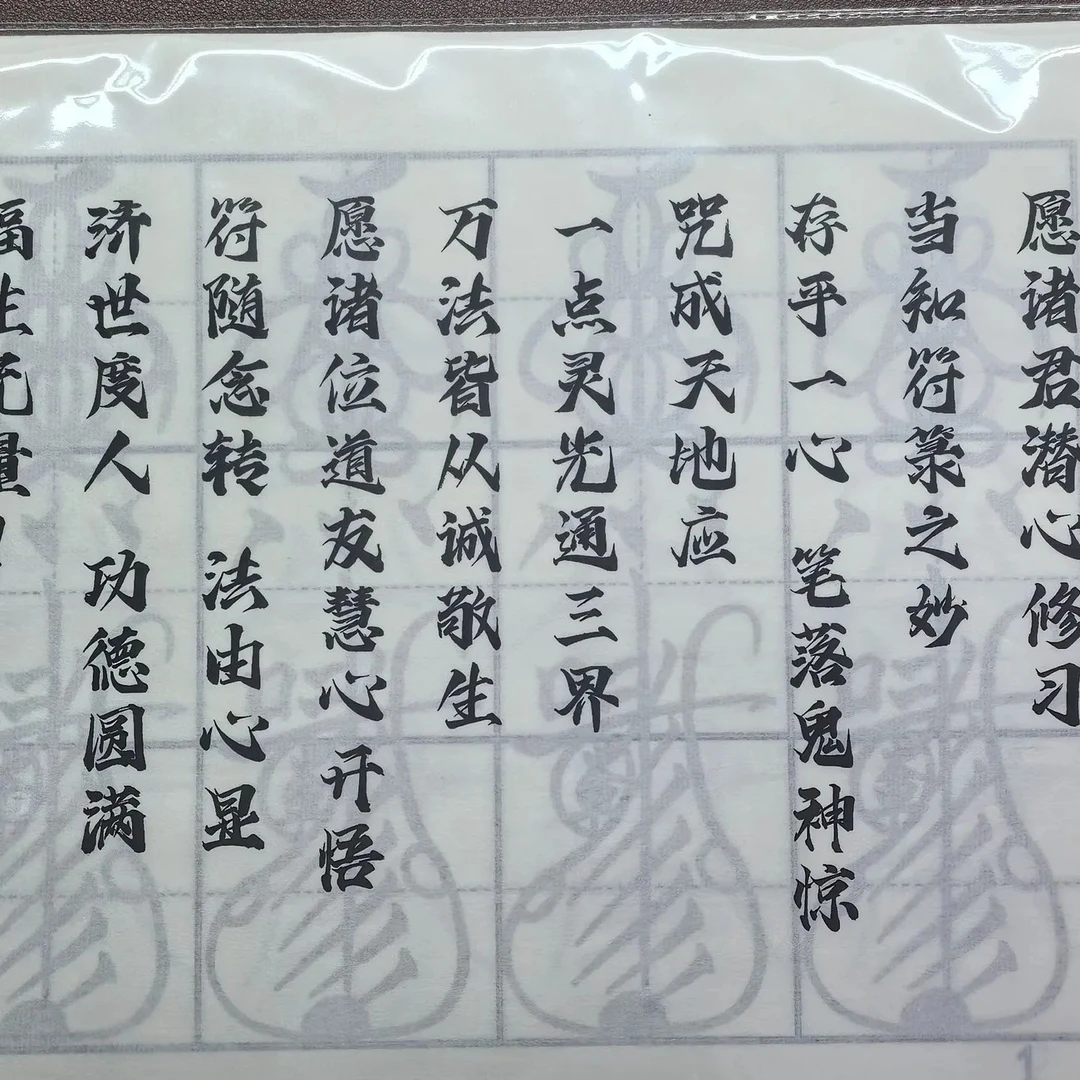 愿诸君潜心修习
当知符箓之妙
存乎一心 笔落鬼神惊
咒成天地应
一点灵光通三界
万法皆从诚敬生
愿诸位道友慧心开悟
符随念转 法由心显
济世度人 功德圆满
福生无量